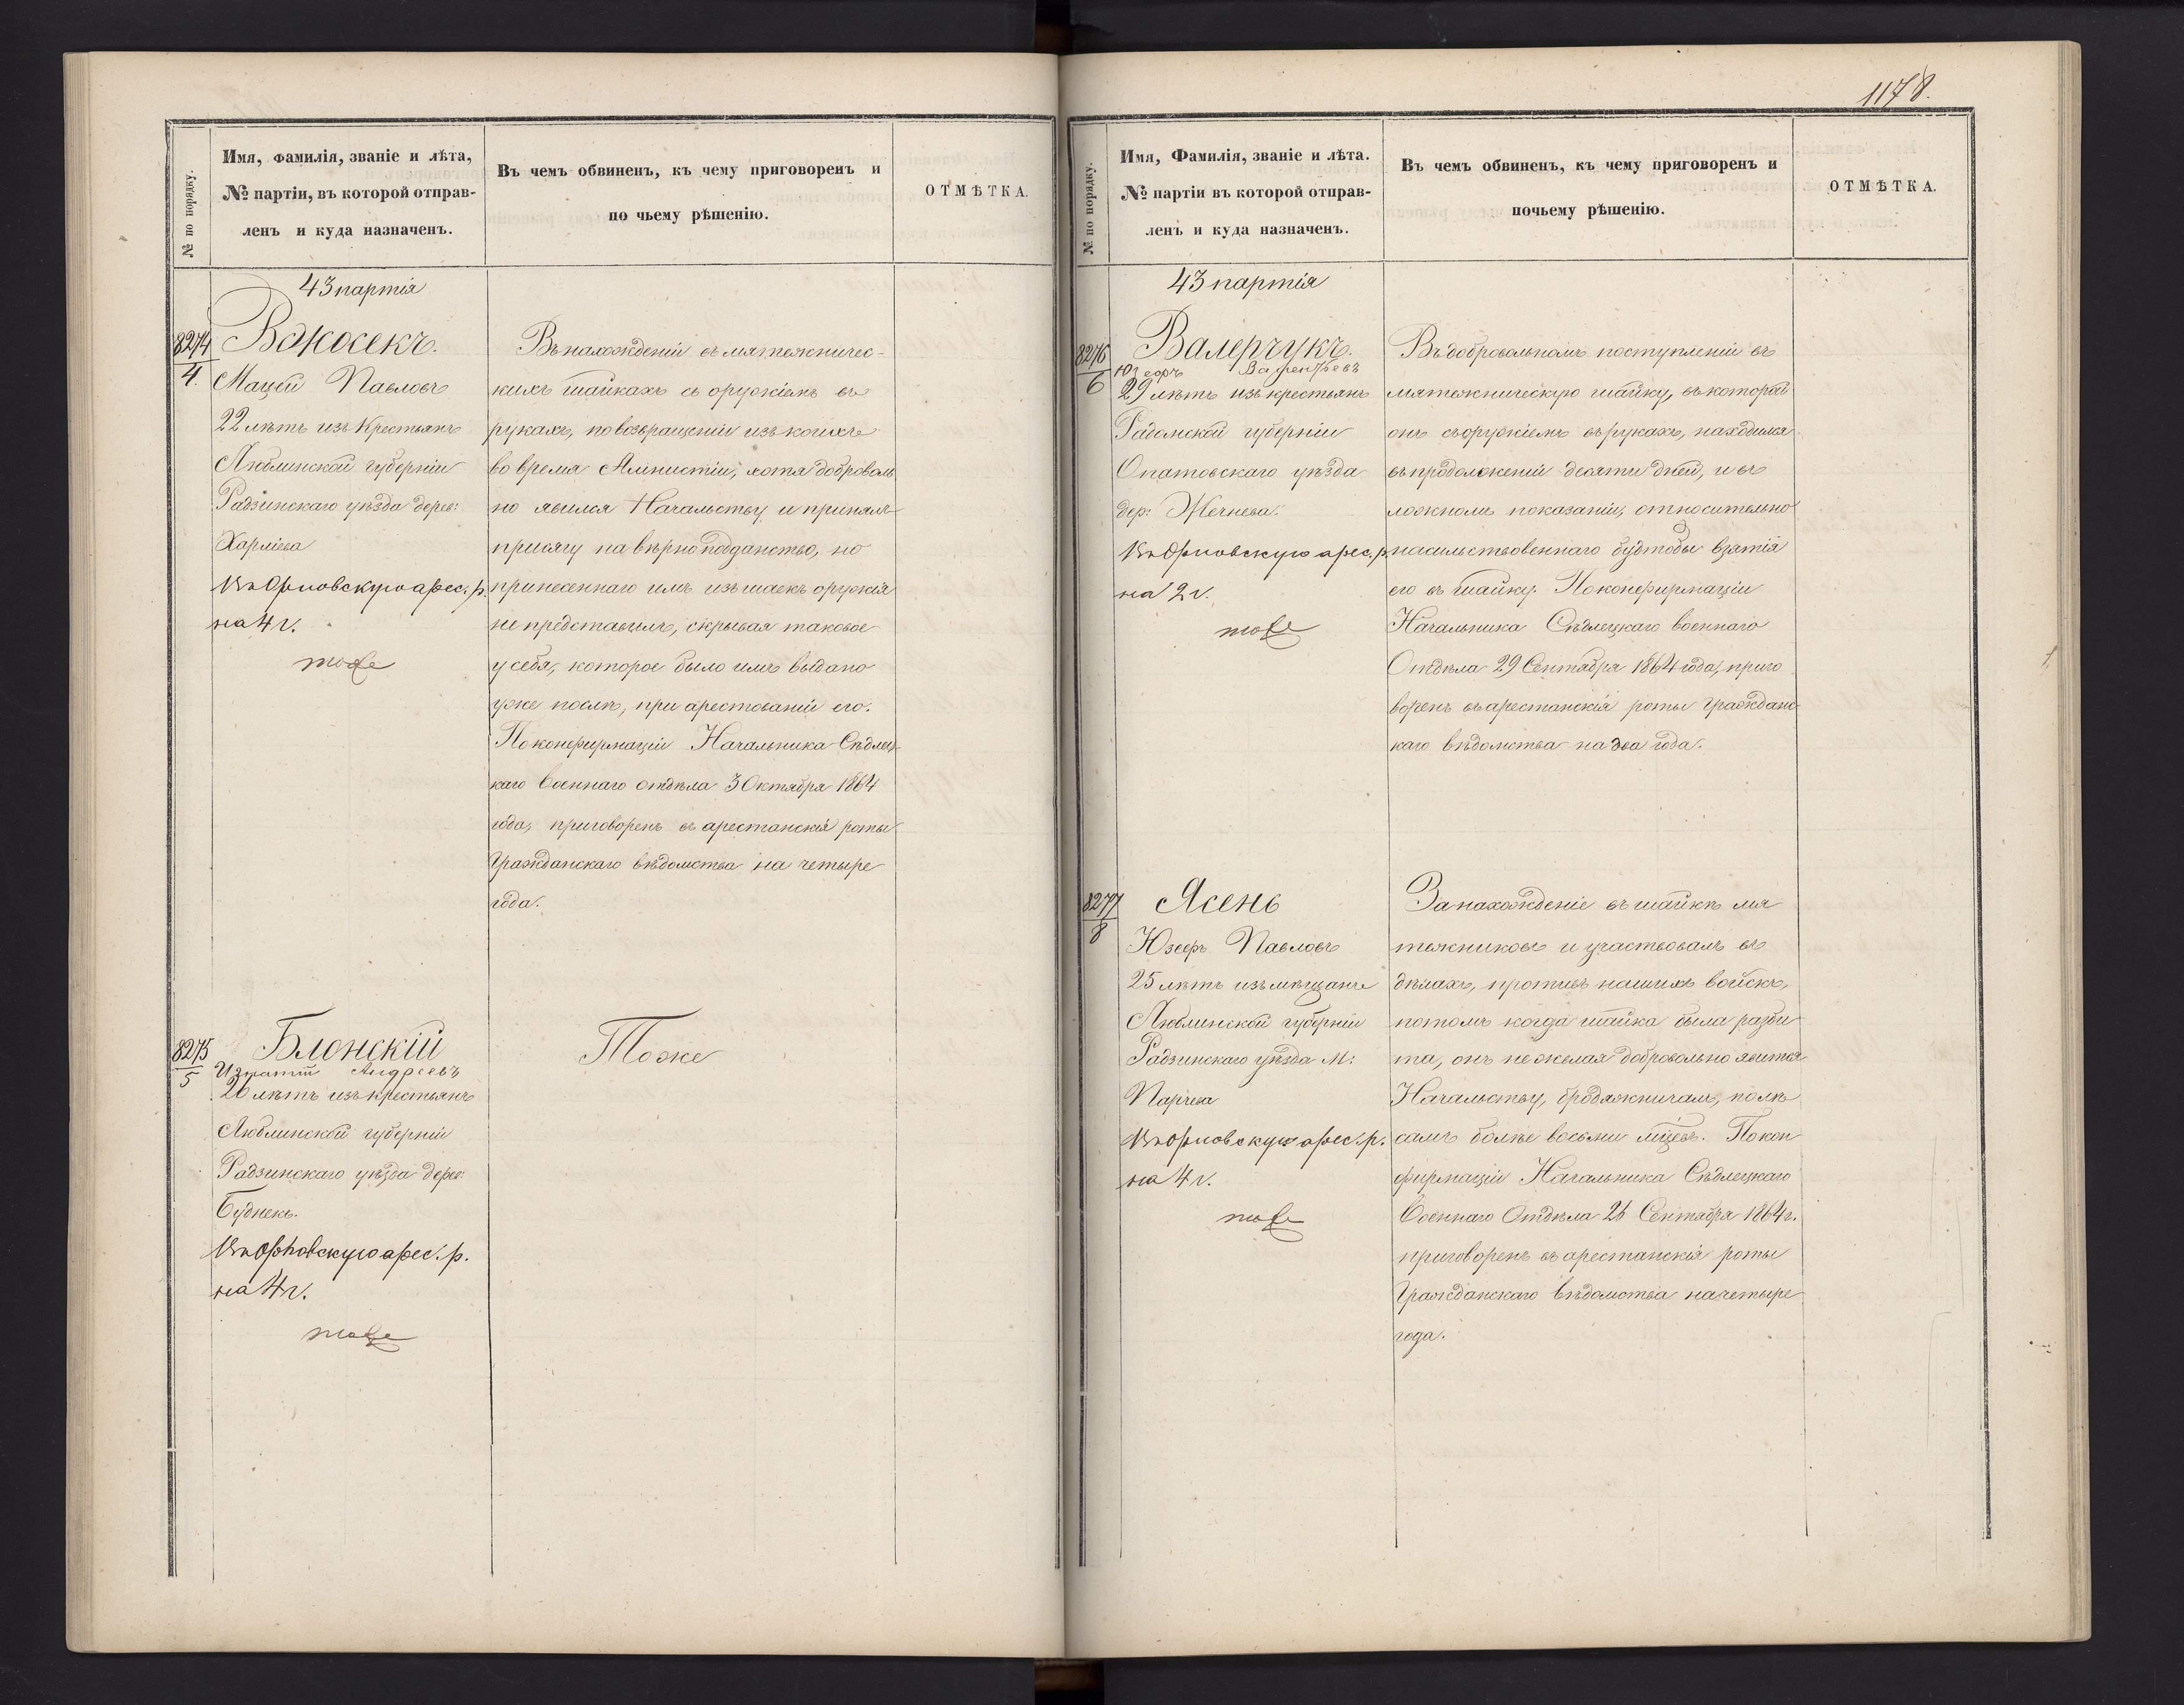 № по порядку.
Имя, Фамилія, званіе и лѣта,
№ партіи, въ которой отправ-
ленъ и куда назначенъ.
Въ чемъ обвиненъ, къ чему приговоренъ и
по чьему рѣшенію.
ОТМѢТКА.
43 партія
8274
4.
Вжосекъ.
Мацей Павловъ
22 лѣтъ изъ Крестьянъ
Люблинской губерніи
Радзинскаго уѣзда дерев:
Харліева
Въ Орловскую арес. р.
на 4 г.
тоже
Въ нахожденіи въ мятежничес-
кихъ шайкахъ съ оружіемъ въ
рукахъ, по возвращеніи изъ коихъ
во время Амнистіи, хотя добровол
но явился Начальству и принялъ
присягу на вѣрноподданство, но
принесеннаго имъ изъ шаекъ оружія
не представилъ, скрывая таковое
у себя, которое было имъ выдано
уже послѣ, при арестованіи его.
По конфирмаціи Начальника Сѣдлец-
каго военнаго отдѣла 3 Октября 1864
года, приговоренъ въ арестанскія роты
Гражданскаго вѣдомства на четыре
года.
8275
5
Блонскій
Игнатій Андреевъ
20 лѣтъ изъ крестьянъ
Люблинской губерніи
Радзинскаго уѣзда дерев:
Буднекъ.
Въ Орловскую арес. р.
на 4 г.
тоже
Тоже
1178.
№ по порядку.
Имя, Фамилія, званіе и лѣта.
№ партіи въ которой отправ-
ленъ и куда назначенъ.
Въ чемъ обвиненъ, къ чему приговоренъ и
почьему рѣшенію.
ОТМѢТКА.
43 партія
8276
6
Валерчукъ.
Юзефъ Валентьевъ
29 лѣтъ изъ крестьянъ
Радомской губерніи
Опатовскаго уѣзда
дер: Жечнева.
Въ Орловскую арес. р.
на 2 г.
тоже
Въ добровольномъ поступленіи въ
мятежническую шайку, въ которой
онъ съ оружіемъ въ рукахъ, находился
въ продолженіи десяти дней, и въ
ложномъ показаніи, относительно
насильствовеннаго будтобы взятія
его въ шайку. По конфирмаціи
Начальника Сѣдлецкаго военнаго
Отдѣла 29 Сентября 1864 года, приго
воренъ въ арестанскія роты Гражданс-
каго вѣдомства на два года.
8277
8
Ясень
Юзефъ Павловъ
25 лѣтъ изъ мѣщанъ
Люблинской губерніи
Радзинскаго уѣзда М:
Парчева
Въ Орловскую арес. р.
на 4 г.
тоже
За нахожденіе въ шайкѣ мя
тежниковъ и участвовалъ въ
дѣлахъ, противъ нашихъ войскъ,
потомъ когда шайка была разби
та, онъ не желая добровольно явится
Начальству, бродяжничалъ, по лѣ
самъ болѣе восьми мѣсяц. По кон
фирмаціи Начальника Сѣдлецкаго
Военнаго Отдѣла 26 Сентября 1864 г.
приговоренъ въ арестанскія роты
Гражданскаго вѣдомства на четыре
года.